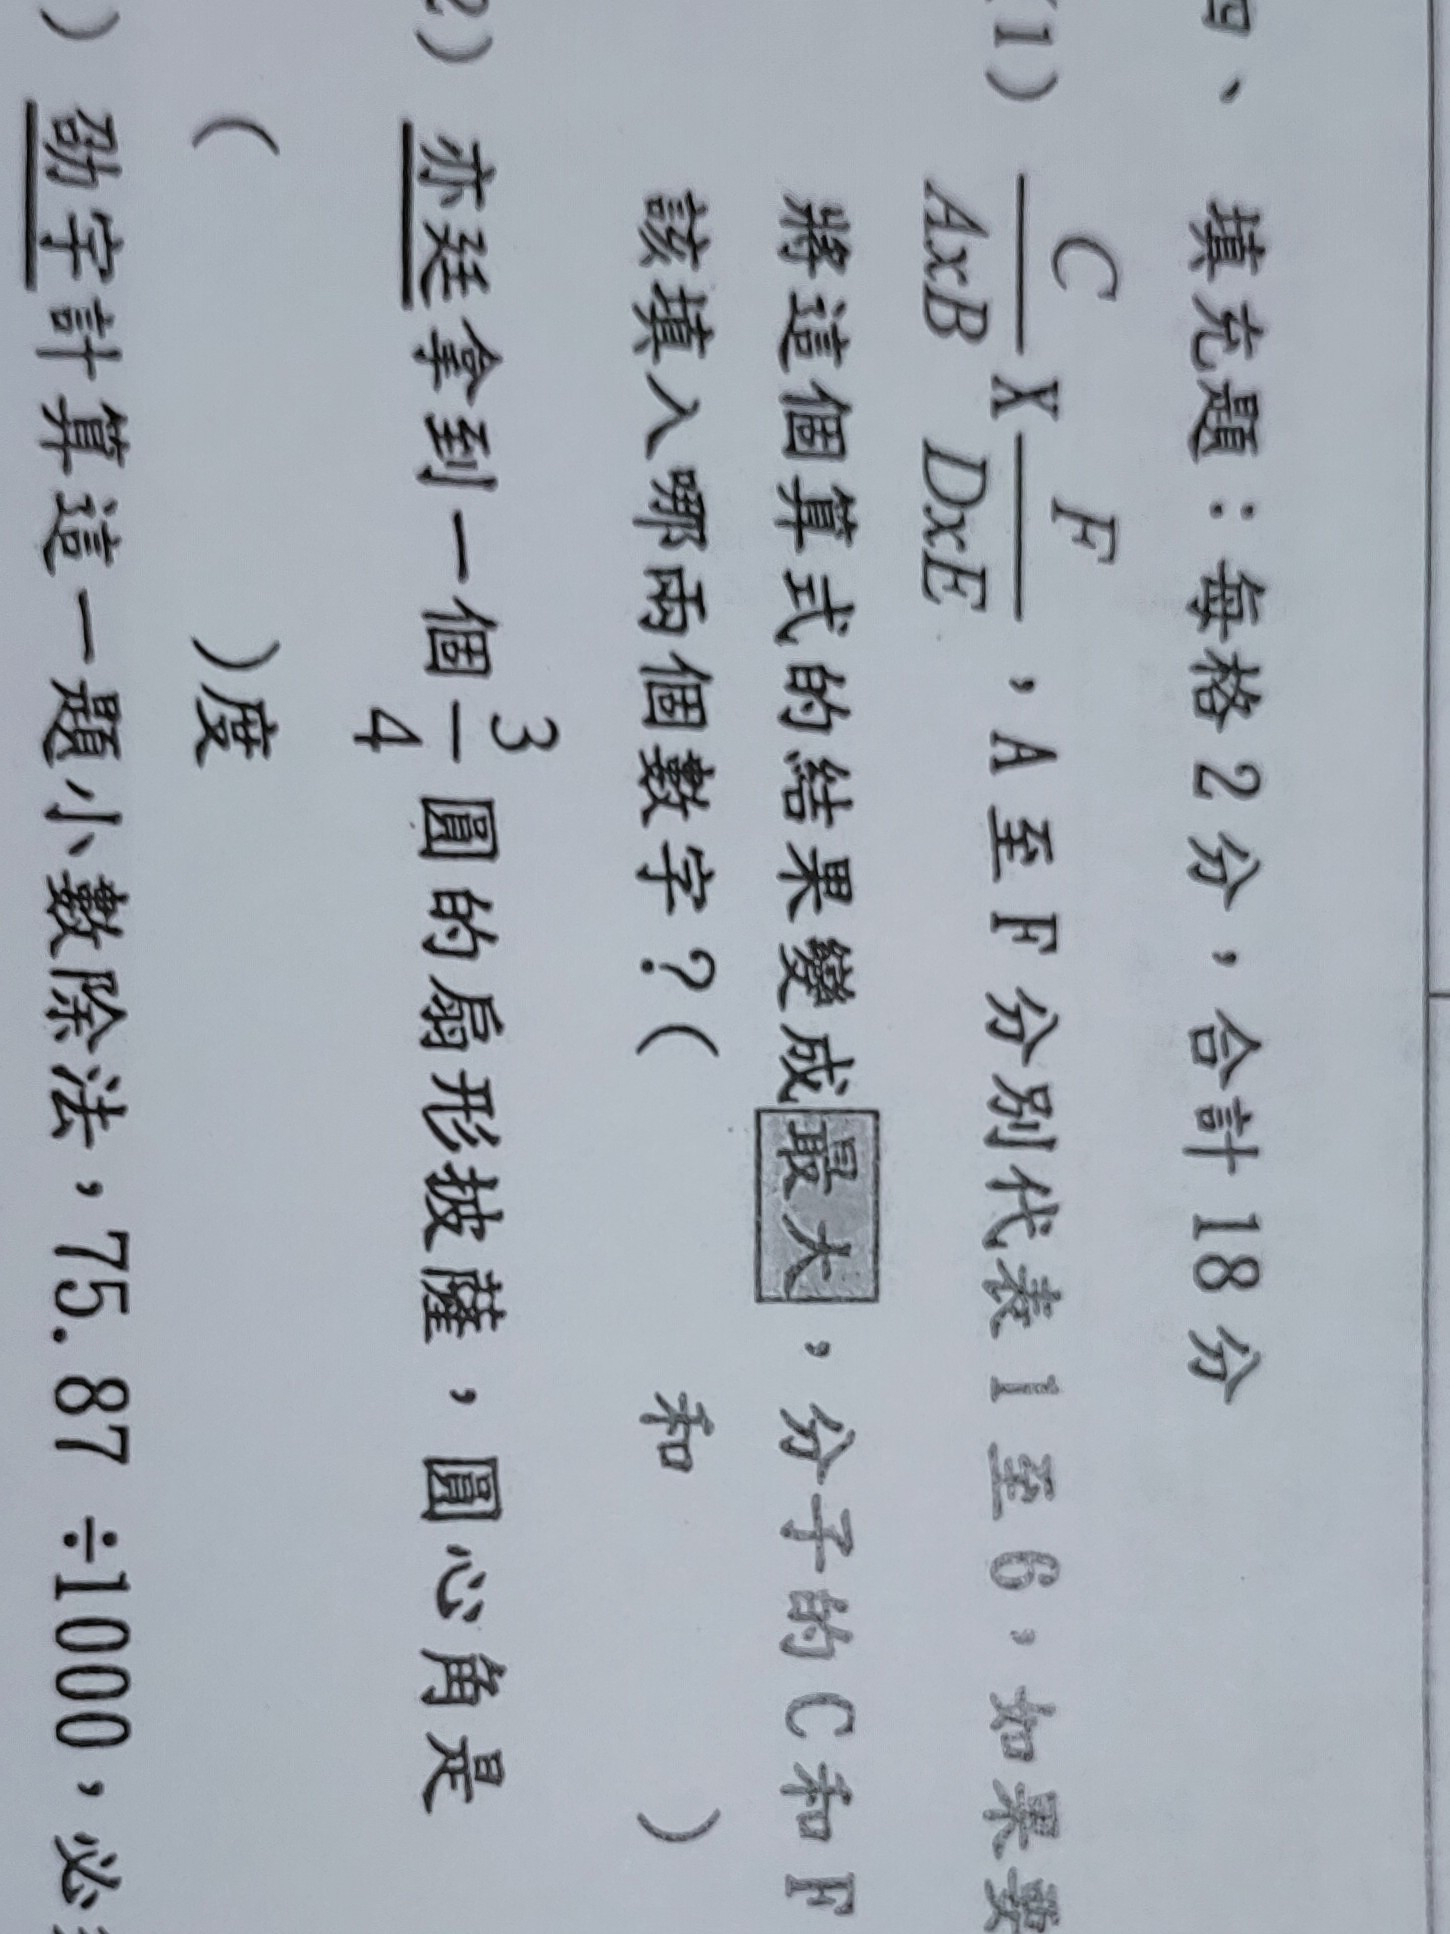 四、填充題：每格2分，合計18分
(1) C/AxB X F/DxE ，A至F分別代表1至6，如果要
將這個算式的結果變成最大，分子的C和F
該填入哪兩個數字？（ 和 ）
2) 亦廷拿到一個3/4圓的扇形披薩，圓心角是
（ ）度
) 劭宇計算這一題小數除法，75.87÷1000，必